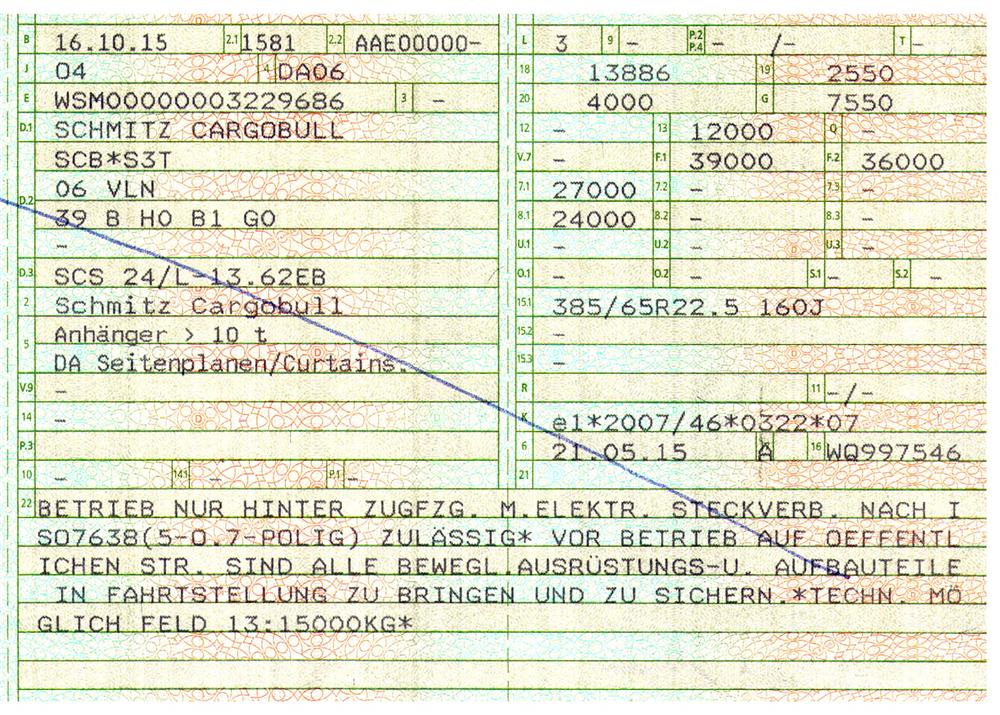 B 16.10.15 2.1 1581 2.2 AAE00000-
J 04 4 DA06
E WSM00000003229686 3 -
D.1 SCHMITZ CARGOBULL
SCB*S3T
06 VLN
D.2 39 B HO B1 GO
-
D.3 SCS 24/L-13.62EB
2 Schmitz Cargobull
Anhänger > 10 t
5 DA Seitenplanen/Curtains.
V.9 -
14 -
P.3
10 - 14.1 - P.1 -
L 3 9 - P.2 P.4 - /- T -
18 13886 19 2550
20 4000 G 7550
12 - 13 12000 Q -
V.7 - F.1 39000 F.2 36000
7.1 27000 7.2 - 7.3 -
8.1 24000 8.2 - 8.3 -
U.1 - U.2 - U.3 -
O.1 - O.2 - S.1 - S.2 -
15.1 385/65R22.5 160J
15.2 -
15.3 -
R 11 -/-
K e1*2007/46*0322*07
6 21.05.15 A 16 WQ997546
21
22 BETRIEB NUR HINTER ZUGFZG. M.ELEKTR. STECKVERB. NACH I
SO7638(5-O.7-POLIG) ZULÄSSIG* VOR BETRIEB AUF OEFFENTL
ICHEN STR. SIND ALLE BEWEGL.AUSRÜSTUNGS-U. AUFBAUTEILE
IN FAHRTSTELLUNG ZU BRINGEN UND ZU SICHERN.*TECHN. MÖ
GLICH FELD 13:15000KG*